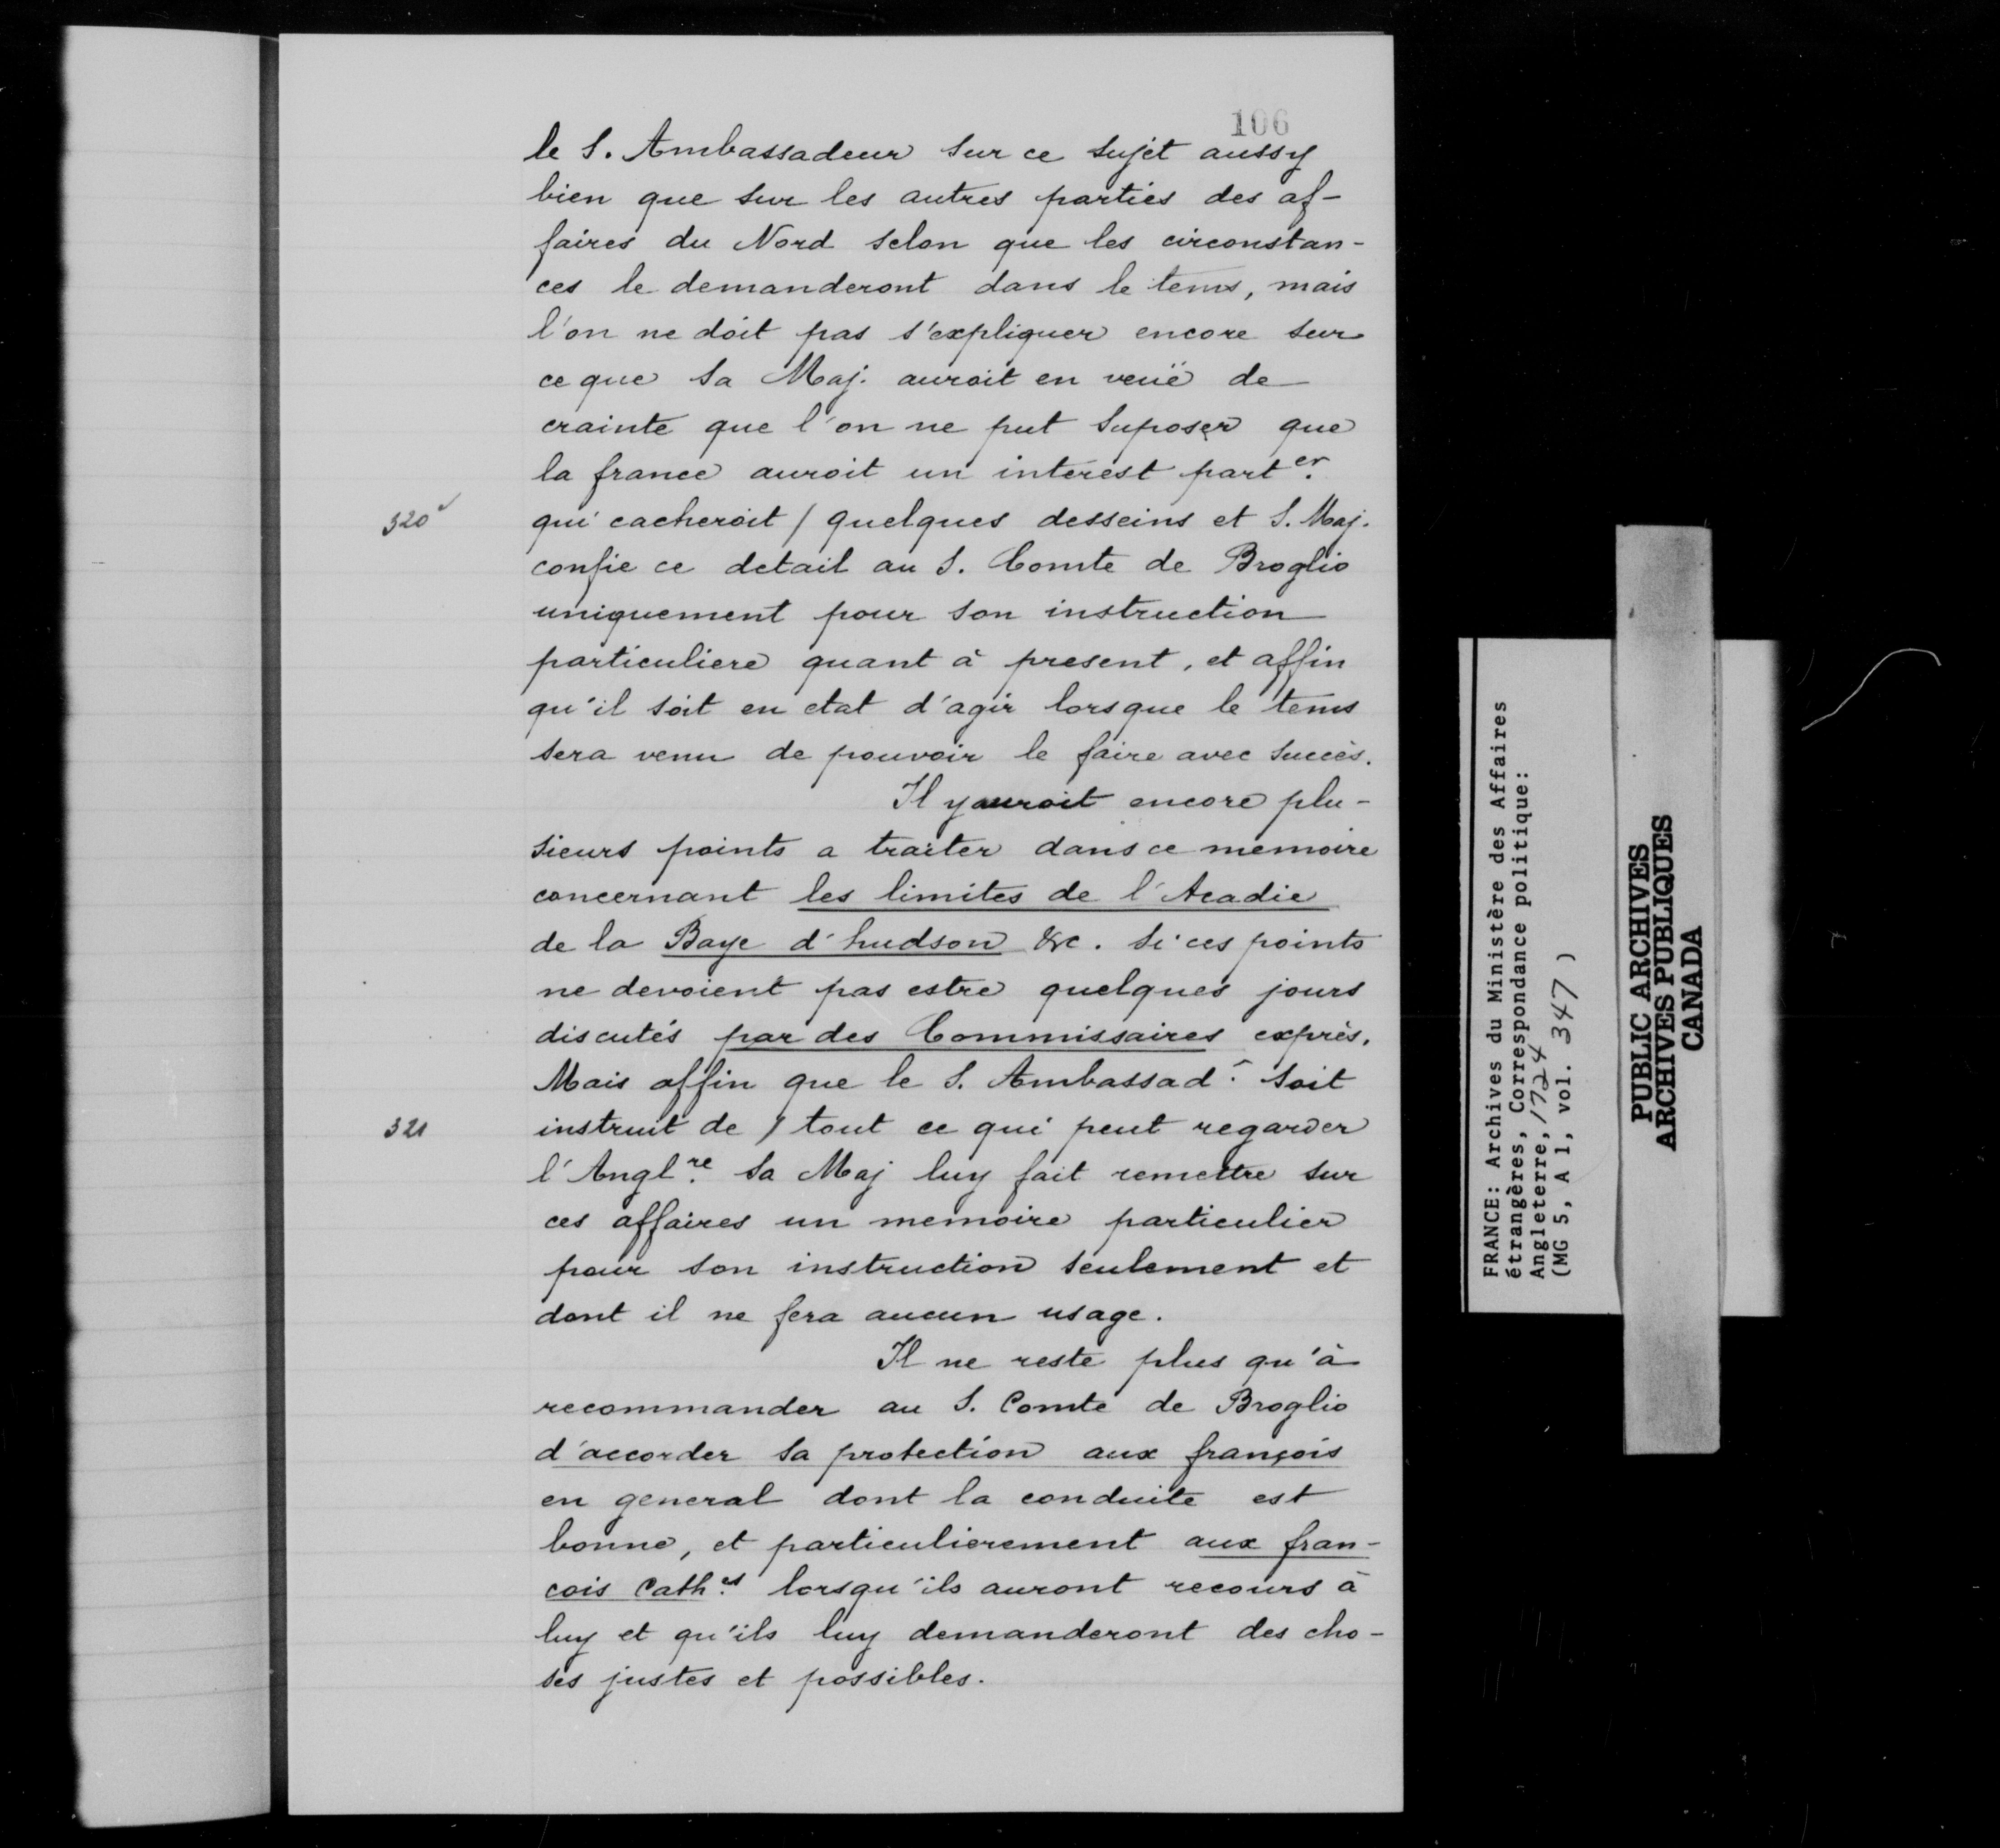 106
le S. Ambassadeur sur ce sujet aussy
bien que sur les autres parties des af-
faires du Nord selon que les circonstan-
ces le demanderont dans le tems, mais
l'on ne doit pas s'expliquer encore sur
ce que Sa Maj. auroit en veüe de
crainte que l'on ne put suposer que
la france auroit un interest part.er
320v
qui cacheroit / quelques desseins et S. Maj.
confie ce detail au S. Comte de Broglio
uniquement pour son instruction
particuliere quant à present, et affin
qu'il soit en etat d'agir lorsque le tems
sera venu de pouvoir le faire avec succès.
Il y auroit encore plu-
sieurs points a traiter dans ce memoire
concernant les limites de l'Acadie
de la Baye d'hudson &c. si ces points
ne devoient pas estre quelques jours
discutés par des Commissaires exprès.
Mais affin que le S. Ambassad.r soit
321
instruit de / tout ce qui peut regarder
l'Angl.re Sa Maj luy fait remettre sur
ces affaires un memoire particulier
pour son instruction seulement et
dont il ne fera aucun usage.
Il ne reste plus qu'à
recommander au S. Comte de Broglio
d'accorder sa protection aux françois
en general dont la conduite est
bonne, et particulierement aux fran-
cois Cath.es lorsqu'ils auront recours à
luy et qu'ils luy demanderont des cho-
ses justes et possibles.
FRANCE: Archives du Ministère des Affaires
étrangères, Correspondance politique:
Angleterre, 1724
(MG 5, A 1, vol. 347)
PUBLIC ARCHIVES
ARCHIVES PUBLIQUES
CANADA